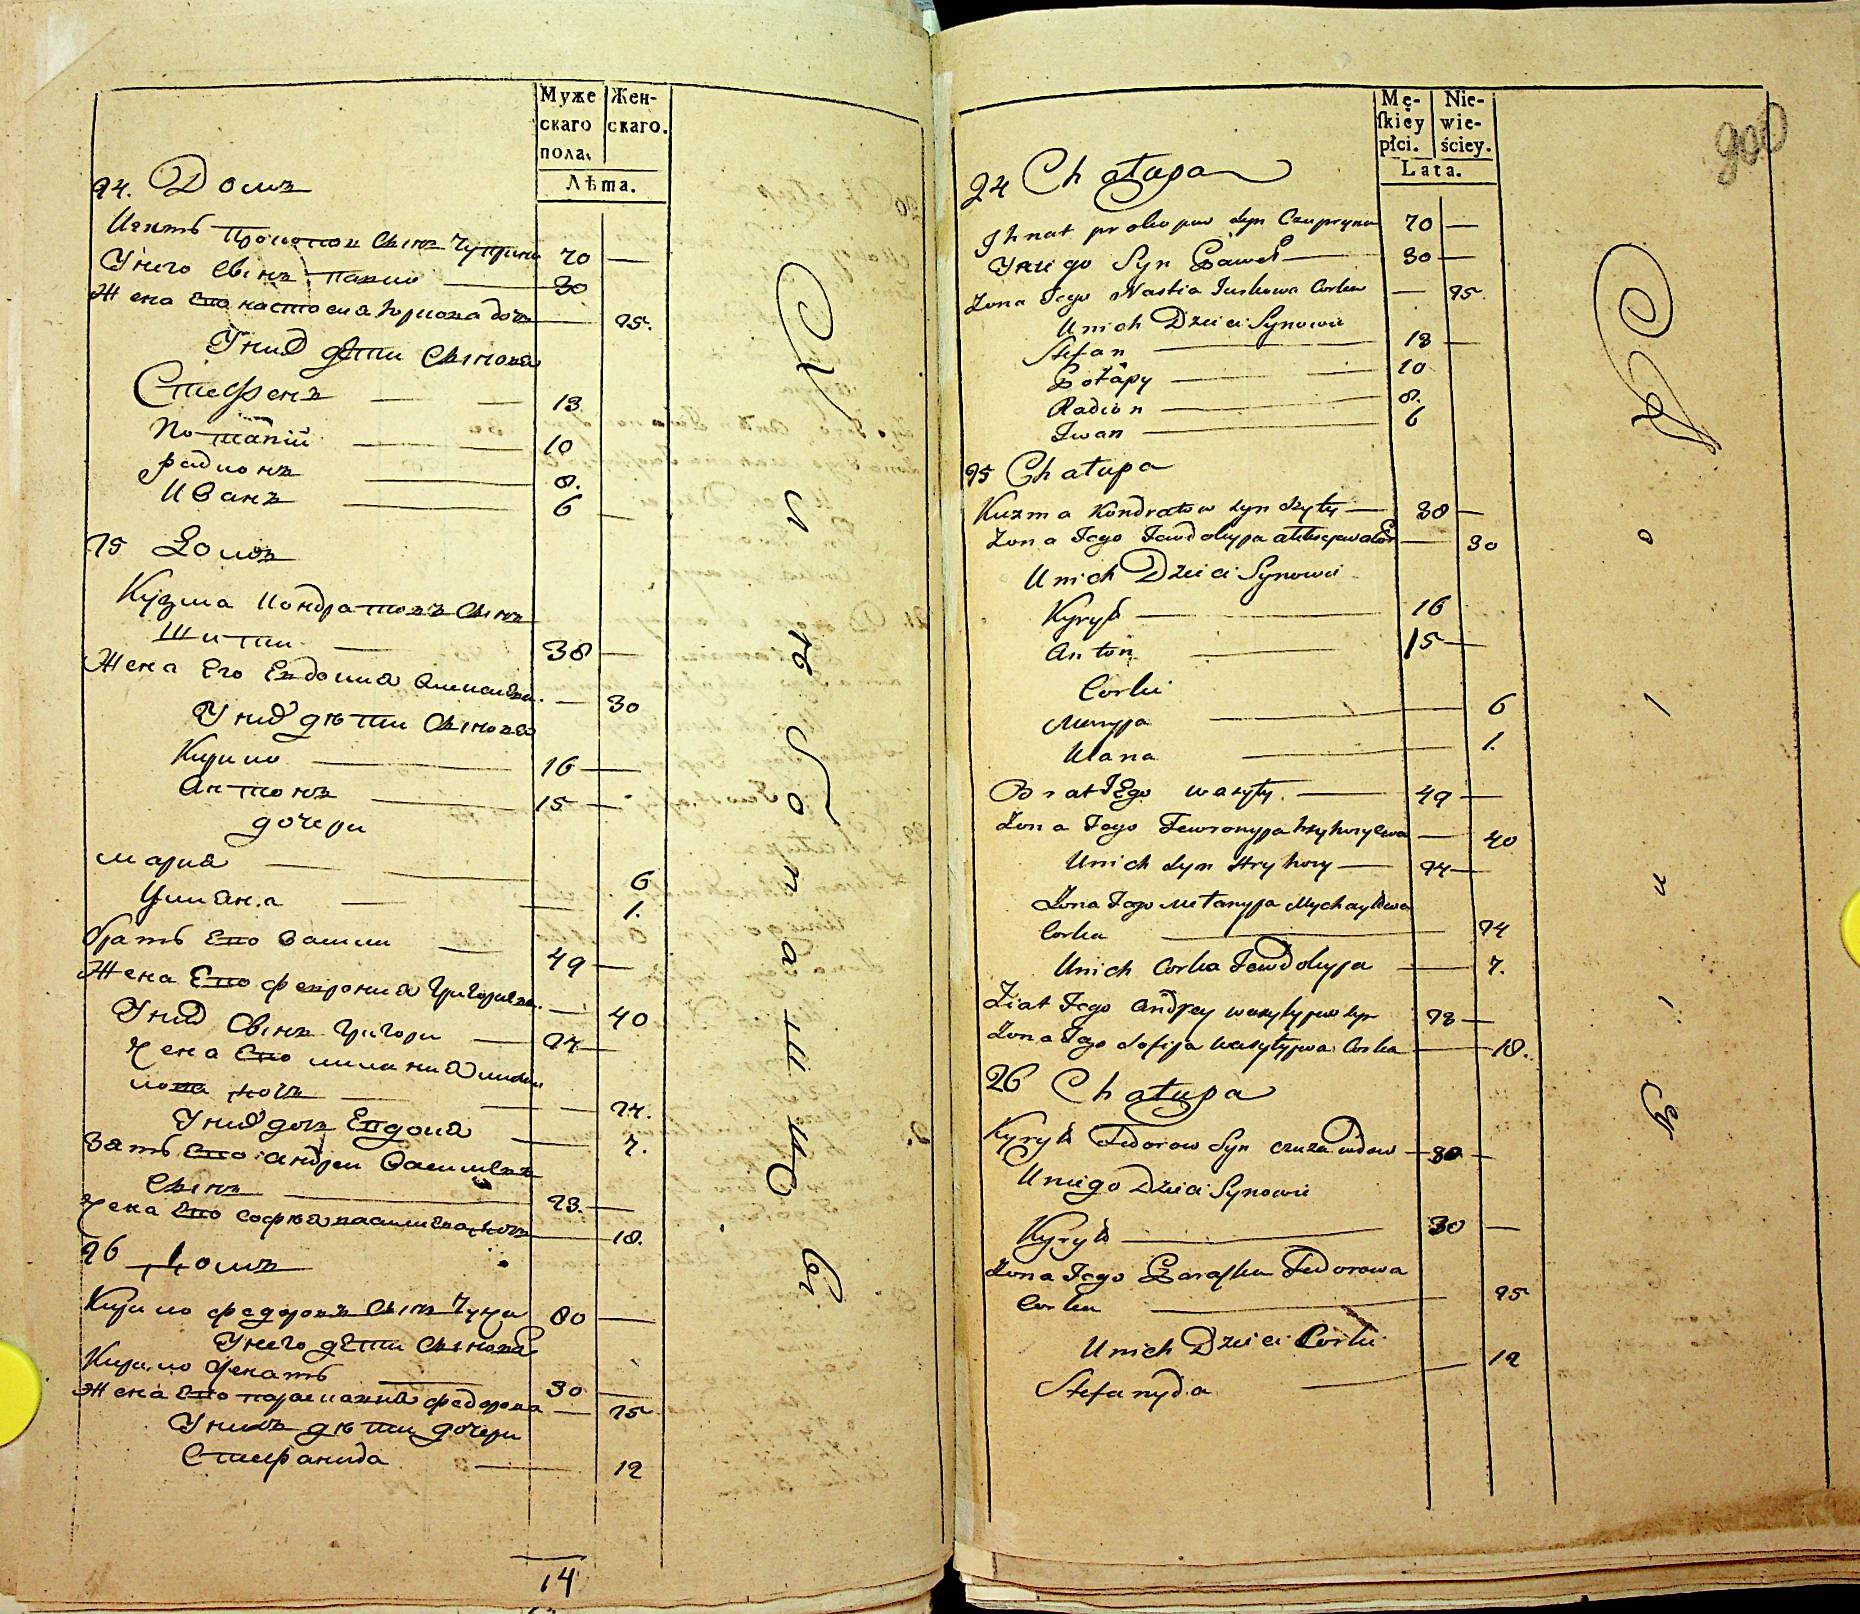 Муже
скаго
пола.
Жен-
скаго.
Лѣта.
24. Домъ
Игнатъ Прокопов Сынъ Чуприна 70 —
Унего Сынъ Павло — 30
Жена Его настосия Юркова дочь — 25.
Унихъ дети Сыновя
Стефенъ — — 13
Потапій — 10
радионъ — 8.
Иванъ — 6 —
25 Домъ
Кузма Кондратовъ Сынъ
Шити — 38 —
Жена Его Евдокия Алексеева. — 30
Унихъ дѣти Сыновя
Кирило — 16 —
Антонъ — 15 —
дочери
мария — 6
Улияна — 1.
братъ Его Васили — 49 —
Жена Его феврония Григориева. — 40
Унихъ Сынъ Григори — 24 —
Жена Его милания михаи
лова дочь — — 24.
Унихъ дочь Евдокия — 7.
Зять Его андреи Василиевъ
Сынъ — 23. —
Жена Его софия василиева дочь — 18.
26 Домъ
Кирило федоровъ Сынъ 80 —
Унего дети Сыновя
Кирило Женатъ — 30 —
Жена Его парасковия федорова — 25
Унихъ дѣти дочери
Стефанида — 12
14
Mę-
skiey
płci.
Nie-
wie-
ściey.
Lata.
200
24 Chałupa
Ihnat prokopow Syn Czupryna 70 —
Uniego Syn Paweł — 30 —
Zona Jego Nastia Juskowa Corka — 25.
Unich Dzieci Synowie
Stefan — 13 —
Potapy — 10
Radion — 8.
Iwan — 6
25 Chałupa
Kuzma Kondratow syn Szyty — 38 —
Zona Jego Jewdokyja — 30
Unich Dzieci Synowie
Kyryło — 16
Anton — 15 —
Corki
Maryja — 6
Ulana — 1.
Brat Jego wasyly. — 49 —
Zona Jego Fewronyja hryhoryewa — 40
Unich Syn Hryhory — 24 —
Zona Jego Mełanyja Mychayłowa
Corka — 24
Unich Corka Jewdokyja — 7.
Ziat Jego Andrey wasylyjow syn 23 —
Zona Jego Sofija wasylyjewa Corka — 18.
26 Chałupa
Kyryło Fedorow Syn — 80 —
Uniego Dzieci Synowie
Kyryło — 30 —
Zona Jego Paraska Fedorowa
Corka — 25
Unich Dzieci Corki
Stefanyda — 12